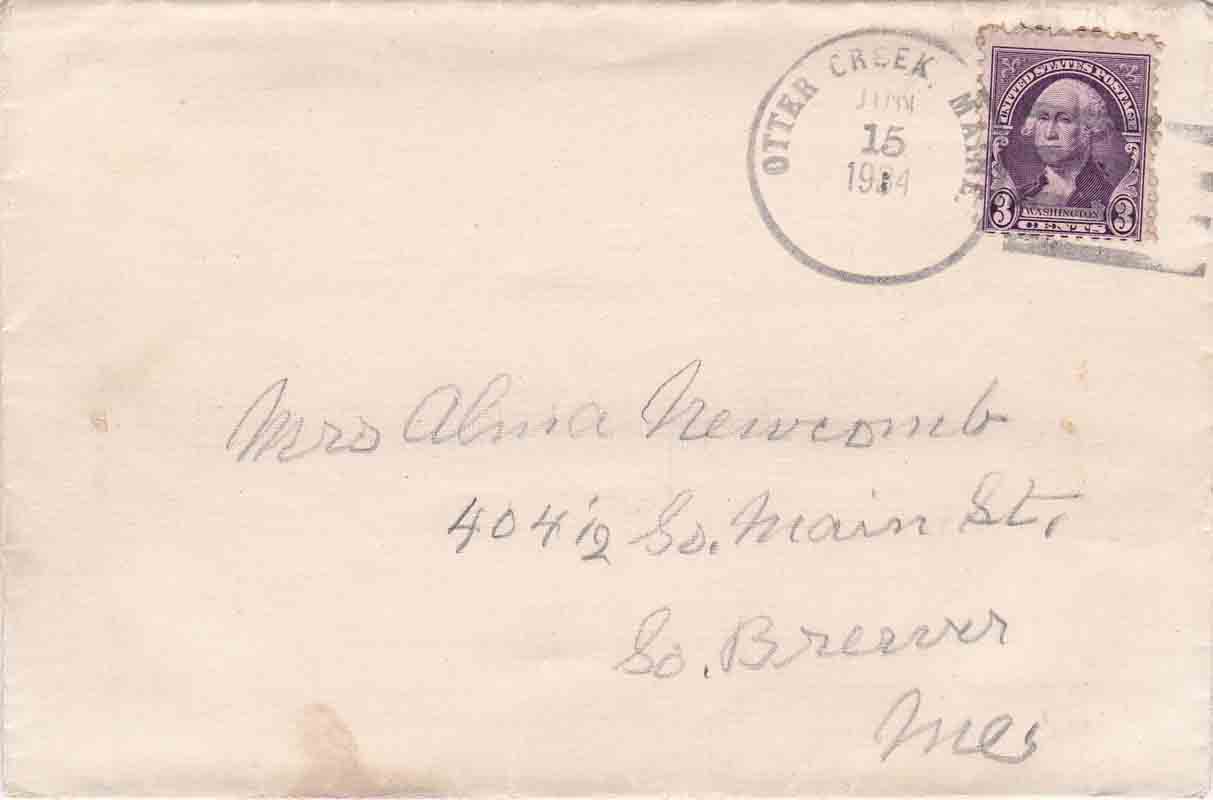 OTTER CREEK, MAINE.
JUN
15
1934
UNITED STATES POSTAGE
WASHINGTON
3 CENTS 3
Mrs Alma Newcomb
404 1/2 So. Main St.
So. Brewer
Me.